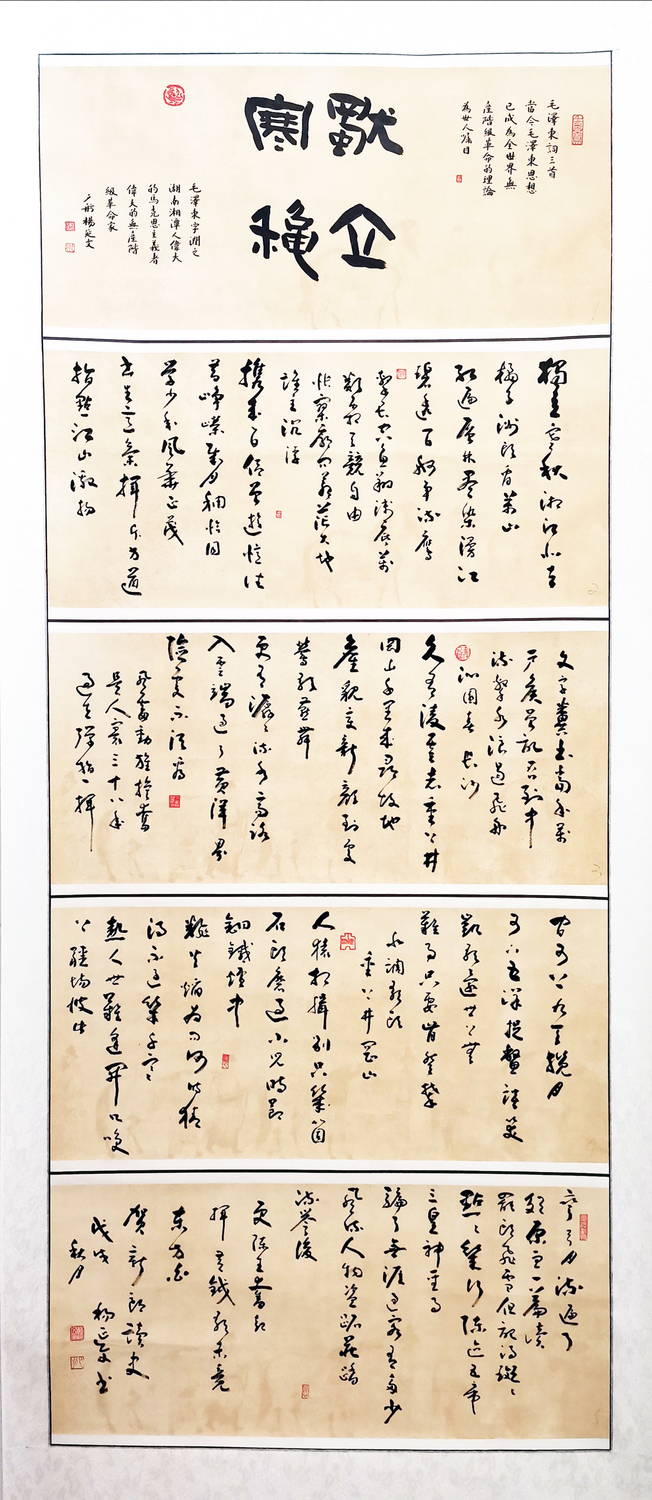 毛澤東詞三首
當今毛澤東思想
已成為全世界無
產階級革命的理論
為世人矚目
獨立
寒穐
毛澤東字潤之
湖南湘潭人偉大
的馬克思主義者
偉大的無產階
級革命家
楊延文
獨立寒秋湘江北去
橘子洲頭看萬山
紅遍層林盡染漫江
碧透百舸爭流鷹
擊長空魚翔淺底萬
類霜天競自由
悵寥廓問蒼茫大地
誰主沉浮
攜來百侶曾遊憶往
昔崢嶸歲月稠恰同
學少年風華正茂
書生意氣揮斥方遒
指點江山激揚
文字糞土當年萬
戶侯曾記否到中
流擊水浪遏飛舟
沁園春長沙
久有凌雲志重上井
岡山千里來尋故地
舊貌變新顏到處
鶯歌燕舞
更有潺々流水高路
入雲端過了黃洋界
險處不須看
風雷動旌旗奮
是人寰三十八年
過去彈指一揮
間可上九天攬月
可下五洋捉鱉談笑
凱歌還世上無
難事只要肯登攀
水調歌頭
重上井岡山
人猿相揖別只幾個
石頭磨過小兒時節
銅鐵爐中
翻火焰為問何時猜
得不過幾千寒
熱人世難逢開口笑
上疆場彼此
彎弓月流遍了
郊原血一篇讀
罷頭飛雪但記得斑々
點々幾行陳迹五帝
三皇神聖事
騙了無涯過客有多少
風流人物盜跖莊蹻
流譽後
更陳王奮起
揮黃鉞歌未竟
東方白
賀新郎讀史
戊戌
秋月
楊延文書